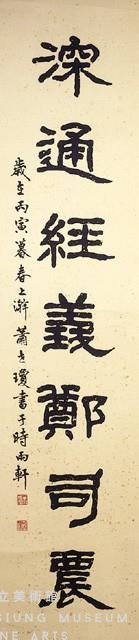 深通經義鄭司農
歲在丙寅暮春上澣蕭世瓊書于時雨軒
立美術館
SIUNG MUSEUM
INE ARTS